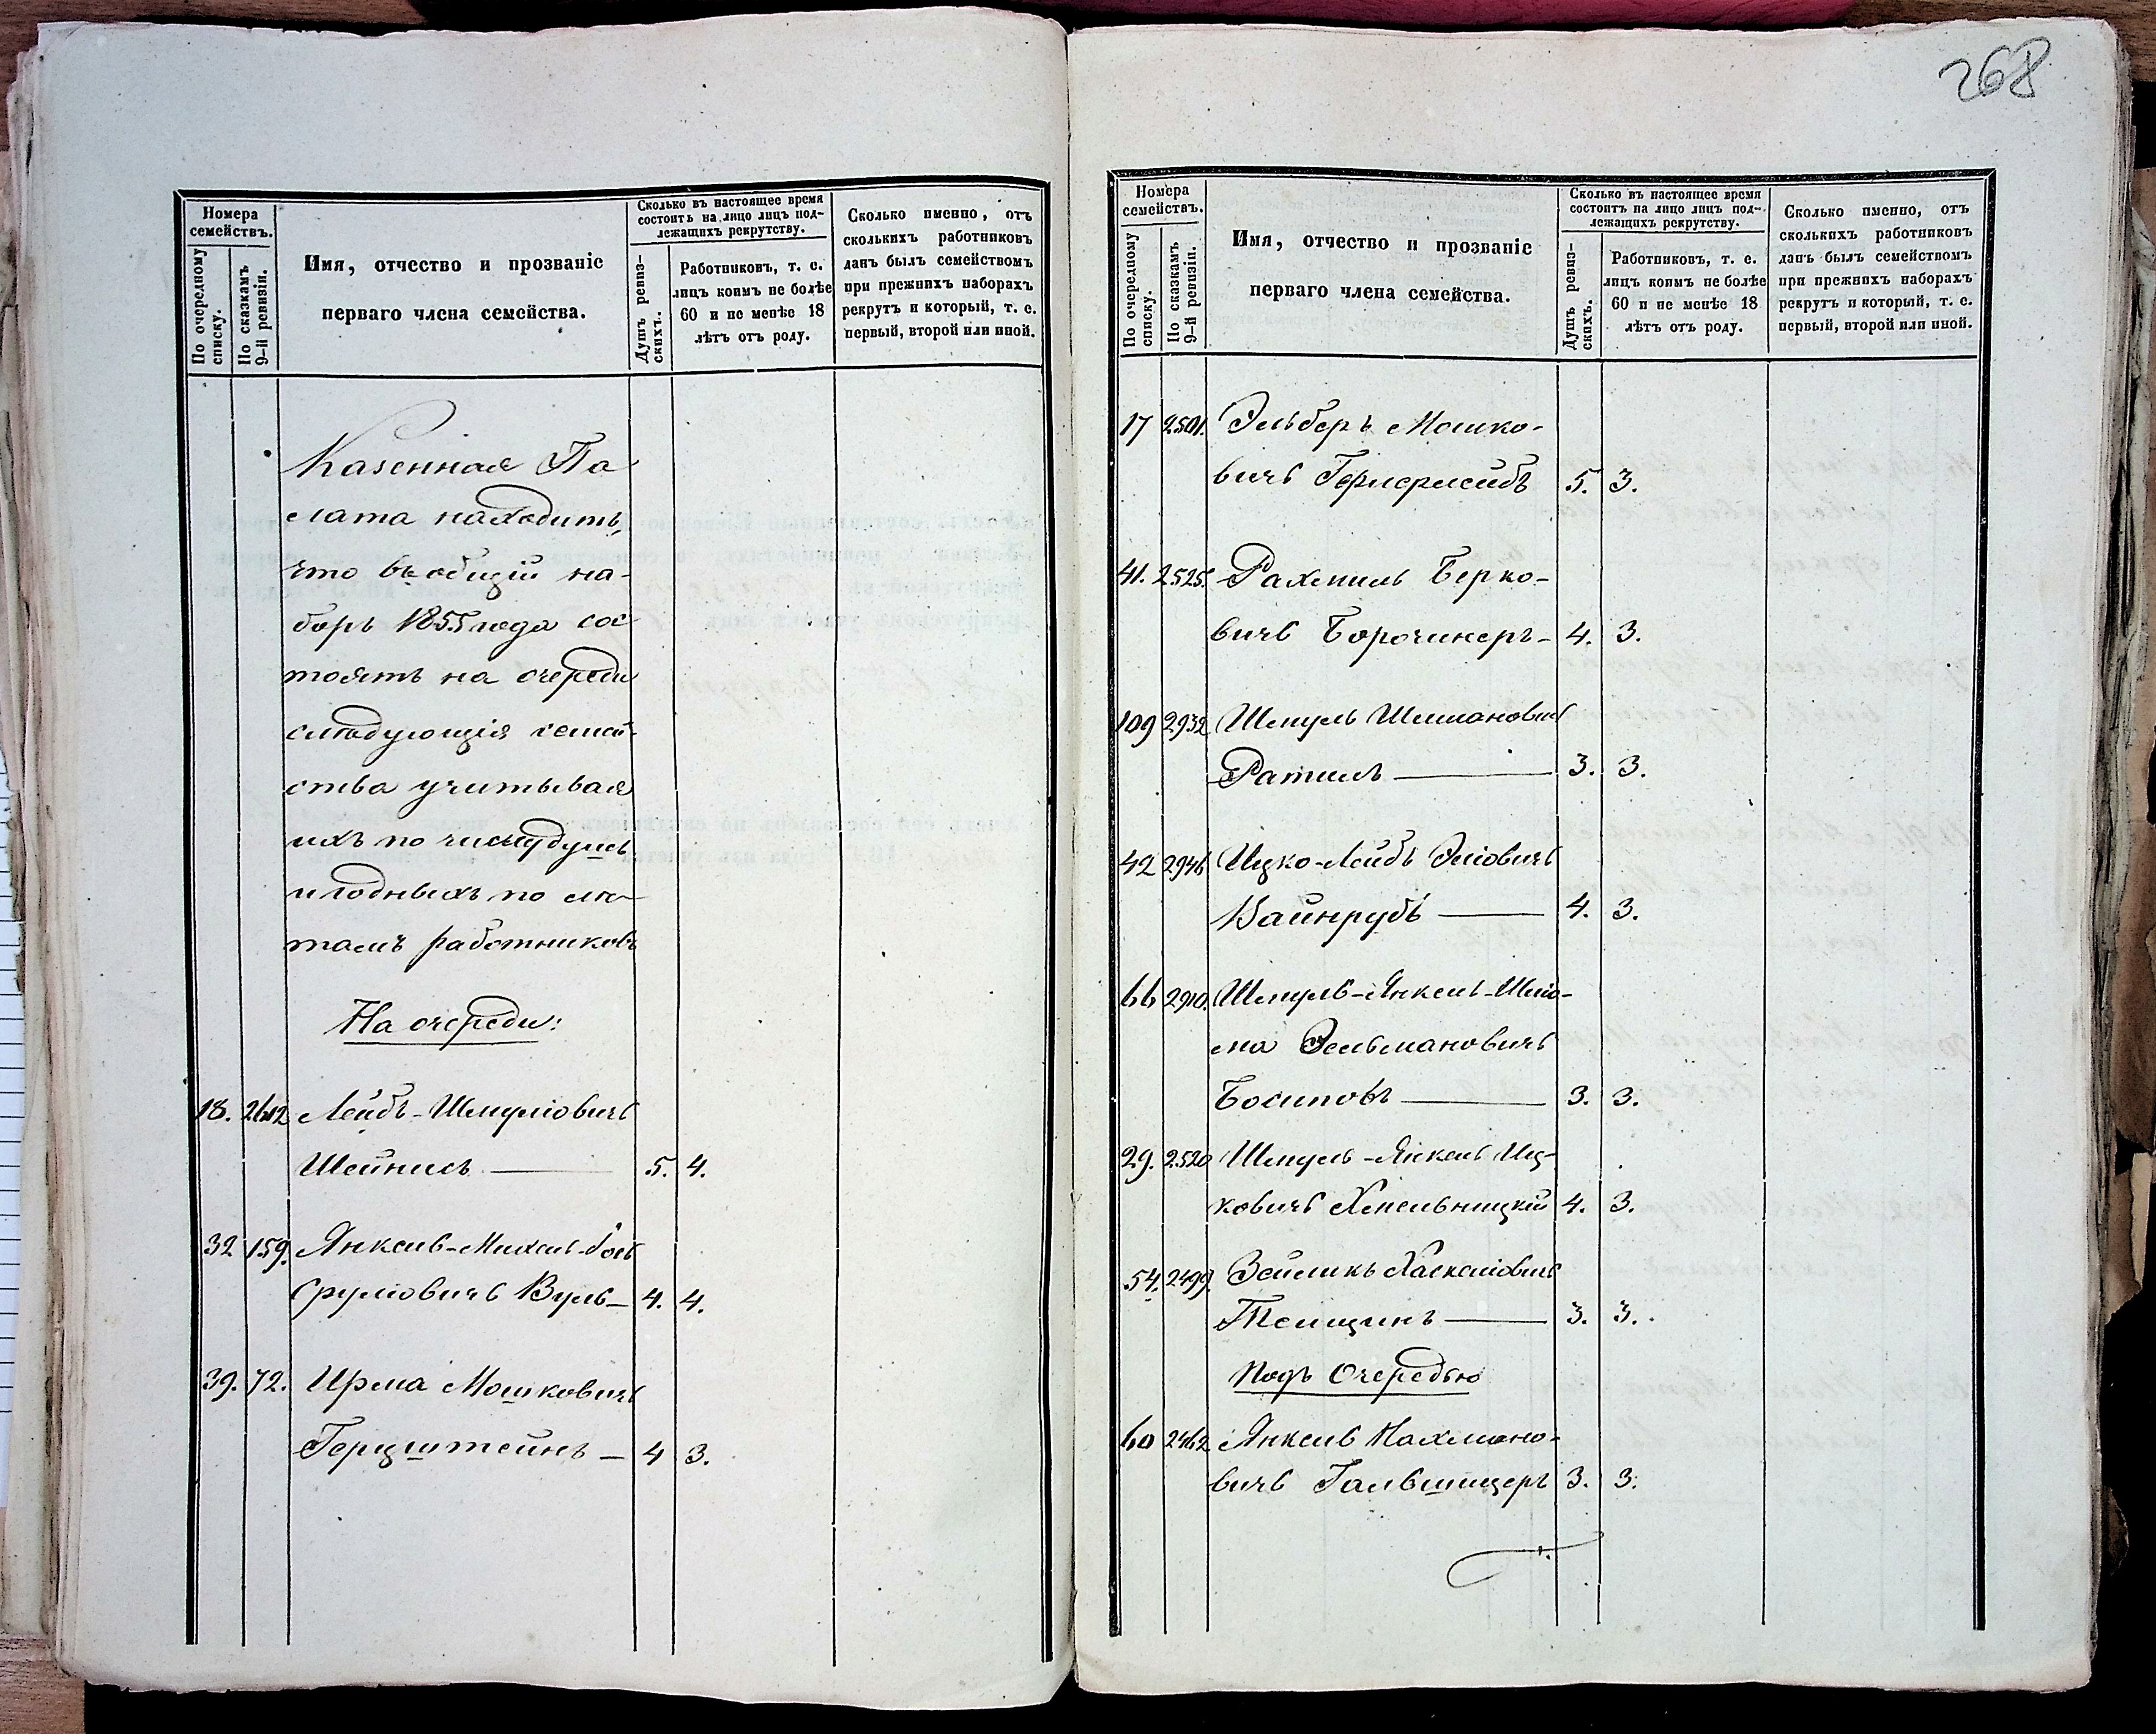 268
Номера
семействъ.
По очередному
списку.
По сказкамъ
9-й ревизіи.
Имя, отчество и прозваніе
перваго члена семейства.
Сколько въ настоящее время
состоитъ на лицо лицъ под-
лежащихъ рекрутству.
Душъ ревиз-
скихъ.
Работниковъ, т. е.
лицъ коимъ не болѣе
60 и не менѣе 18
лѣтъ отъ роду.
Сколько именно, отъ
сколькихъ работниковъ
данъ былъ семействомъ
при прежнихъ наборахъ
рекрутъ и который, т. е.
первый, второй или иной.
Казенная Па
лата находитъ,
что въ общій на-
боръ 1855 года сос
тоятъ на очереди
слѣдующія семей-
ства учитывая
ихъ по числу душъ
и годныхъ по лѣ-
тамъ работниковъ
На очереди:
18. 2612 Лейбъ-Шмуліовичъ
Шейнисъ — 5. 4.
32 159. Янкель-Михель-
Сруліовичъ Вуль — 4. 4.
39. 72. Ирма Мошковичъ
Герцштейнъ — 4 3.
Номера
семействъ.
По очередному
списку.
По сказкамъ
9-й ревизіи.
Имя, отчество и прозваніе
перваго члена семейства.
Сколько въ настоящее время
состоитъ на лицо лицъ под-
лежащихъ рекрутству.
Душъ ревиз-
скихъ.
Работниковъ, т. е.
лицъ коимъ не болѣе
60 и не менѣе 18
лѣтъ отъ роду.
Сколько именно, отъ
сколькихъ работниковъ
данъ былъ семействомъ
при прежнихъ наборахъ
рекрутъ и который, т. е.
первый, второй или иной.
17 2501. Эльберъ Мошко-
вичъ 5. 3.
41. 2525. Рахмиль Берко-
вичъ Борочинеръ — 4. 3.
109 2932 Шмуль Шимановичъ
Ратиль — 3. 3.
42 2946 Ицко-Лейбъ Эліовичъ
Вайнрубъ — 4. 3.
66 2910. Шмуль-Янкель-Шлио-
ма Зельмановичъ
— 3. 3.
29. 2520 Шмуль-Янкель Иц-
ковичъ Хмельницкій 4. 3.
54. 2499. Зейликъ Хаскеліовичъ
— 3. 3.
Подъ Очередью
60 2462 Янкель Нахмано-
вичъ Гальшицеръ 3. 3.